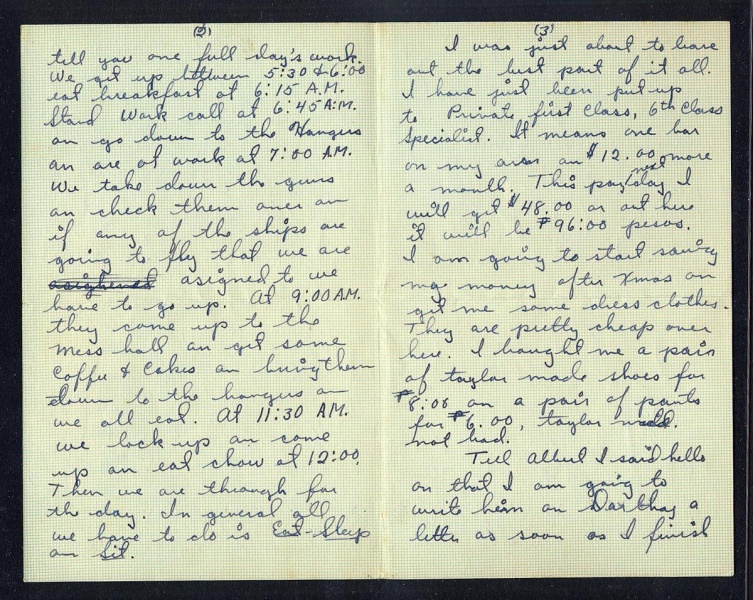 (2)
till you one full day's work.
We get up between 5:30 & 6:00
eat breakfast at 6:15 A.M.
Stand Work call at 6:45 A.M.
an go down to the Hangers
an are at work at 7:00 A.M.
We take down the guns
an check them over an
if any of the ships are
going to fly that we are
asigned to we
have to go up. At 9:00 AM.
they come up to the
mess hall an get some
Coffee & Cakes an bring them
down to the hangers an
we all eat. At 11:30 AM.
we lock up an come
up an eat chow at 12:00.
Then we are through for
the day. In general all
we have to do is Eat-Sleep
an Sit.
(3)
I was just about to leave
out the best part of it all.
I have just been put up
to Private, first Class, 6th Class
Specialist. It means one bar
on my arm an $12.00 more
a month. This pay next day I
will get $48.00 or out here
it will be ₱96:00 pesos.
I am going to start saving
my money after Xmas an
get me some dress clothes.
They are pretty cheap over
here. I bought me a pair
of taylor made shoes for
₱8:00 an a pair of pants
for ₱6.00, taylor made.
not bad.
Tell Albert I said hello
an that I am going to
write him an Darthay a
letter as soon as I finish